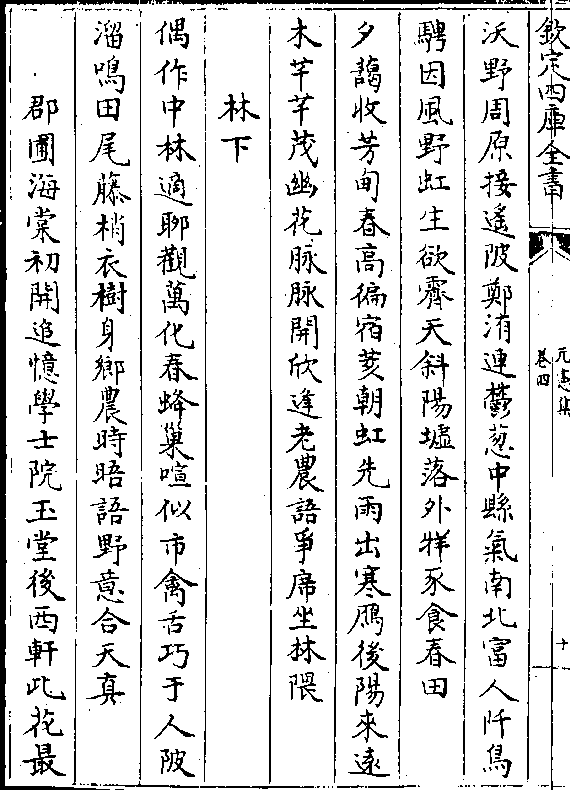 欽定四庫全書
元憲集
卷四
十
沃野周原接遙陂鄭洧連鬱葱中縣氣南北富人阡鳥
騁因風野虹生欲霽天斜陽墟落外牂豕食春田
夕靄收芳甸春高徧宿荄朝虹先雨出寒鴈後陽來遠
木芊芊茂幽花脉脉開欣逢老農語爭席坐林隈
林下
偶作中林適聊觀萬化春蜂巢喧似市禽舌巧于人陂
溜鳴田尾藤梢衣樹身鄉農時晤語野意合天真
郡圃海棠初開追憶學士院玉堂後西軒此花最